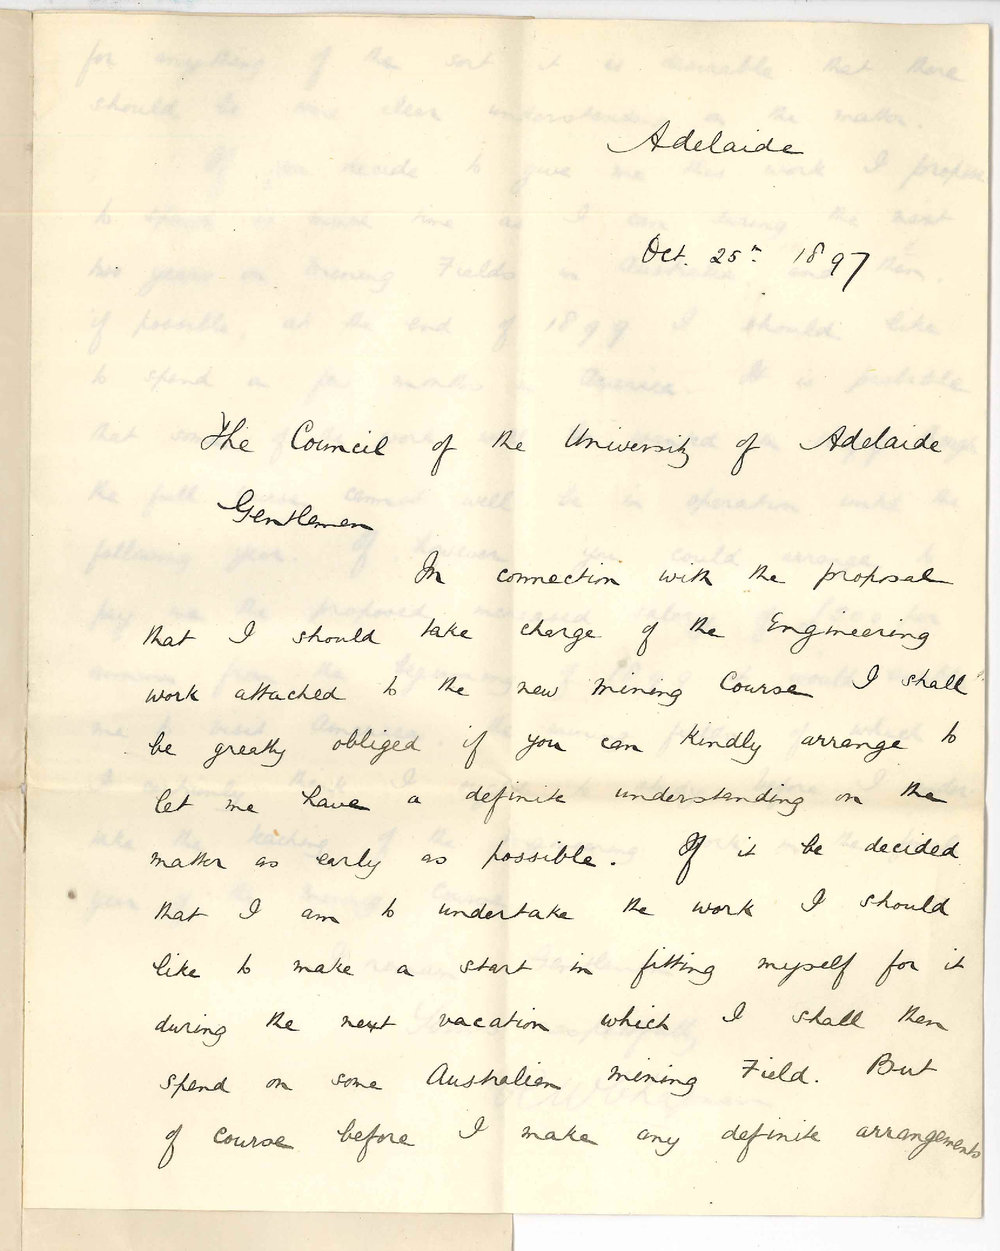 Adelaide
Oct. 25th 1897
The Council of the University of Adelaide
Gentlemen
In connection with the proposal
that I should take charge of the Engineering
work attached to the new Mining Course I shall
be greatly obliged if you can kindly arrange to
let me have a definite understanding on the
matter as early as possible. If it be decided
that I am to undertake the work I should
like to make a start in fitting myself for it
during the next vacation which I shall then
spend on some Australian Mining Field. But
of course before I make any definite arrangements